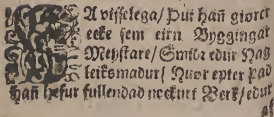 A vitſſelega/ Þuí hañ giorer
ecke ſem eirn Byggingar
Meyſtare/ Smiðr edur Hag
leiksmadur/ Huor epter þad
hañ hefur fullendad neckurt Verk/ edur